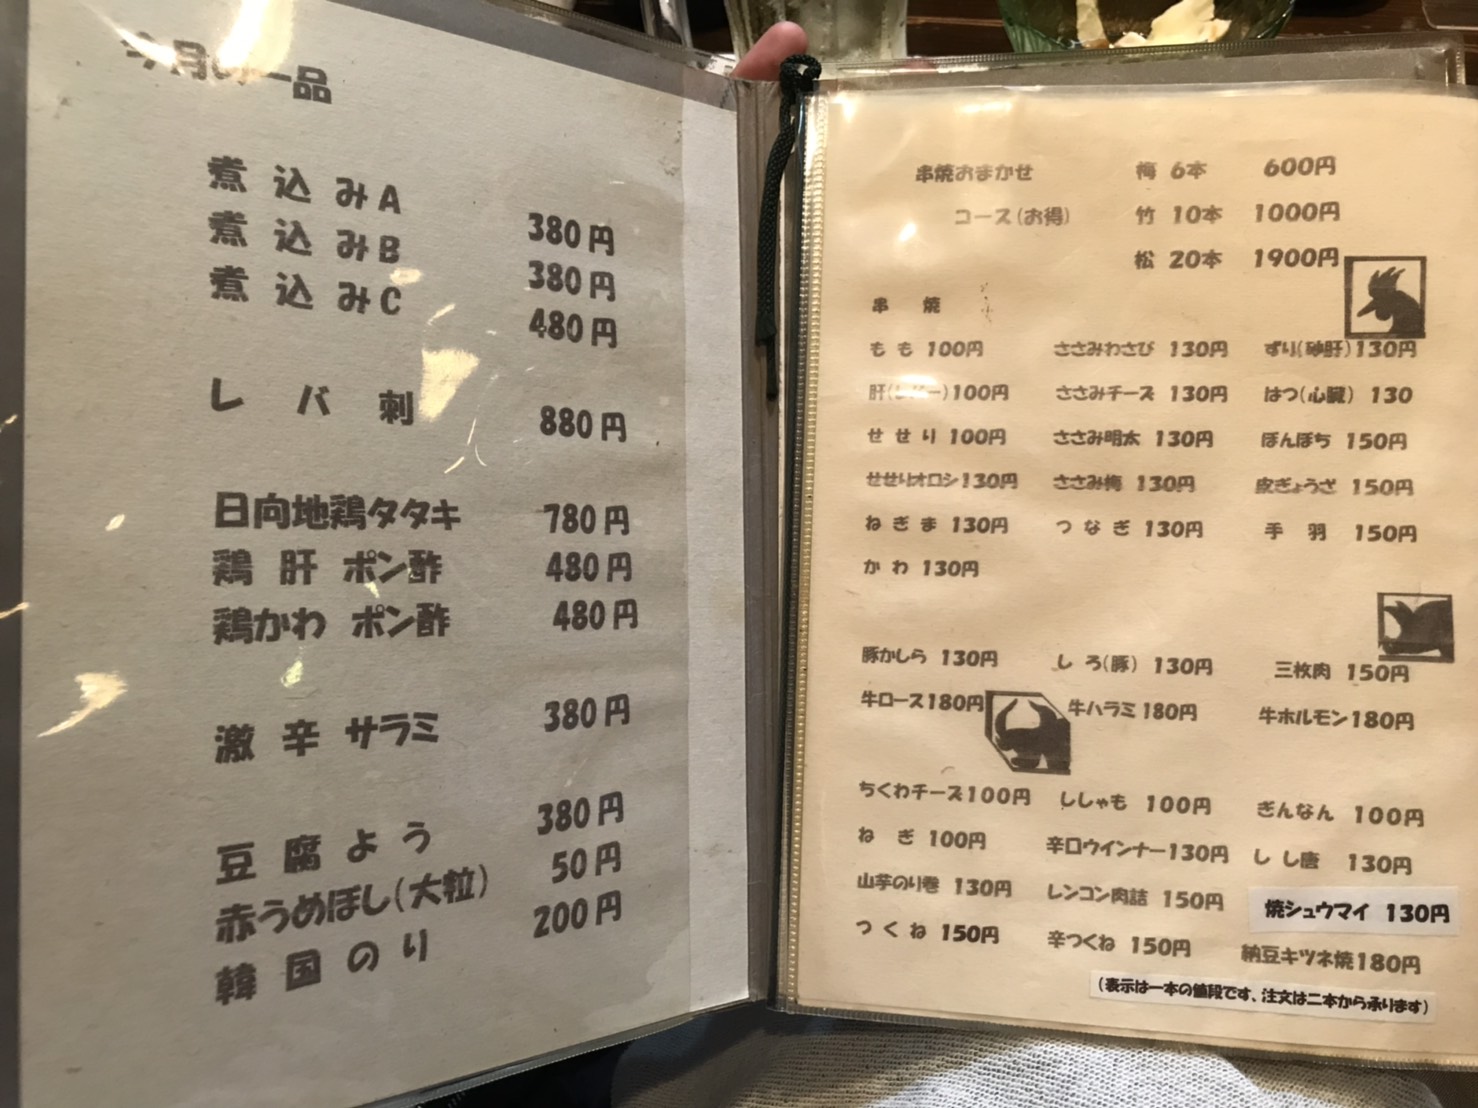 今月の一品
煮込みA 380円
煮込みB 380円
煮込みC 480円
レバ刺 880円
日向地鶏タタキ 780円
鶏肝 ポン酢 480円
鶏かわ ポン酢 480円
激辛サラミ 380円
豆腐よう 380円
赤うめぼし(大粒) 50円
韓国のり 200円
串焼おまかせ 梅 6本 600円
コース(お得) 竹 10本 1000円
松 20本 1900円
串 焼
もも 100円 ささみわさび 130円 ずり(砂肝)130円
肝(レバー)100円 ささみチーズ 130円 はつ(心臓) 130
せせり 100円 ささみ明太 130円 ぼんぼち 150円
せせりオロシ130円 ささみ梅 130円 皮ぎょうざ 150円
ねぎま 130円 つなぎ 130円 手 羽 150円
かわ 130円
豚かしら 130円 しろ(豚) 130円 三枚肉 150円
牛ロース180円 牛ハラミ180円 牛ホルモン180円
ちくわチーズ100円 ししゃも 100円 ぎんなん 100円
ねぎ 100円 辛口ウインナー130円 しし唐 130円
山芋のり巻 130円 レンコン肉詰 150円 焼シュウマイ 130円
つくね 150円 辛つくね 150円 納豆キツネ焼180円
(表示は一本の値段です、注文は二本から承ります)